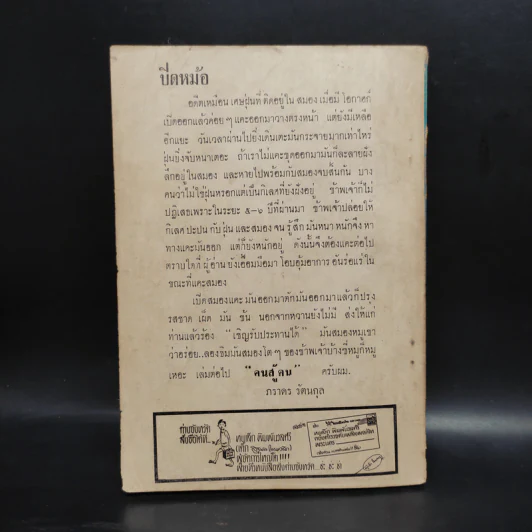 ปิดหม้อ
อดีตเหมือนเศษฝุ่นที่ติดอยู่ในสมอง เมื่อมีโอกาสก็
เปิดออกแล้วค่อยๆแคะออกมาวางตรงหน้า แต่ยังมีเหลือ
อีกแยะ วันเวลาผ่านไปยิ่งเดินเตะมันกระจายมากเท่าไหร่
ฝุ่นยิ่งจับหนาเตอะ ถ้าเราไม่แคะขุดออกมามันก็ละลายฝัง
ลึกอยู่ในสมอง และหายไปพร้อมกับสมองจบสิ้นกัน บาง
คนว่าไม่ใช่ฝุ่นหรอกแต่เป็นกิเลสที่ยังฝังอยู่ ข้าพเจ้าก็ไม่
ปฏิเสธเพราะในระยะ ๕-๖ ปีที่ผ่านมา ข้าพเจ้าปล่อยให้
กิเลสปะปนกับฝุ่นและสมองจนรู้สึกมันหนาหนักจึงหา
ทางแคะเก็นออก แต่ก็ยังหนักอยู่ ดังนั้นจึงต้องแคะต่อไป
ตราบใดที่ผู้อ่านยังเอื้อมมือมาโอบอุ้มอาการอันร่อแร่ใน
ขณะที่แคะสมอง
เปิดสมองแคะมันออกมาตักมันออกมาแล้วก็ปรุง
รสชาด เผ็ด มัน ข้น นอกจากหวานยังไม่มี ส่งให้แก่
ท่านแล้วร้อง "เชิญรับประทานได้" มันสมองหมูเขา
ว่าอร่อย..ลองชิมมันสมองโตๆของข้าพเจ้าบ้างซี่หมูก็หมู
เหอะ เล่มต่อไป "คนสู้คน" ครับผม.
ภราดร รัตนกุล